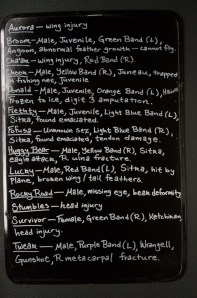 Aurora - wing injury
Broom - Male, Juvenile, Green Band (L),
Angoon, abnormal feather growth - cannot fly.
wing injury, Red Band (R).
Male, Yellow Band (R), Juneau, trapped
in fishing net, Juvenile
Donald - Male, Juvenile, Orange Band (L),
frozen to ice, digit 3 amputation.
Male, Juvenile, Light Blue Band (L),
Sitka, found emaciated.
Unknown sex, Light Blue Band (R),
Sitka, found emaciated, tendon damage.
Huggy Bear - Male, Yellow Band (R), Sitka,
eagle attack, R ulna fracture.
Lucky - Male, Red Band (L), Sitka, hit by
Plane, broken wing/tail feathers.
Rocky Road - Male, missing eye, beak deformity
Stumbles - head injury
Survivor - Female, Green Band (R), Ketchikan,
head injury.
Tweak - Male, Purple Band (L), Wrangell,
Gunshot, R metacarpal fracture.